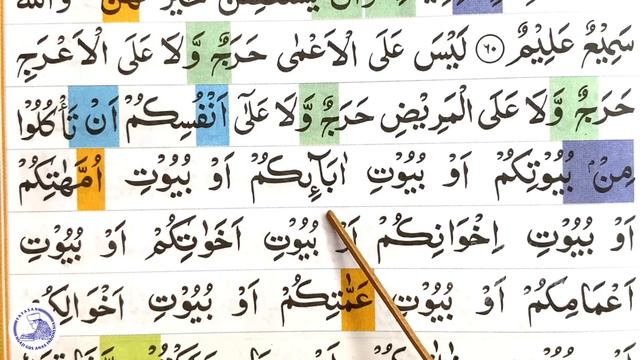 سَمِيْعٌ عَلِيْمٌ ﴿٦٠﴾ لَيْسَ عَلَى الْاَعْمٰى حَرَجٌ وَّلَا عَلَى الْاَعْرَجِ
حَرَجٌ وَّلَا عَلَى الْمَرِيْضِ حَرَجٌ وَّلَا عَلٰٓى اَنْفُسِكُمْ اَنْ تَأْكُلُوْا
مِنْۢ بُيُوْتِكُمْ اَوْ بُيُوْتِ اٰبَآئِكُمْ اَوْ بُيُوْتِ اُمَّهٰتِكُمْ
اَوْ بُيُوْتِ اِخْوَانِكُمْ اَوْ بُيُوْتِ اَخَوٰتِكُمْ اَوْ بُيُوْتِ
اَعْمَامِكُمْ اَوْ بُيُوْتِ عَمّٰتِكُمْ اَوْ بُيُوْتِ اَخْوَالِكُمْ